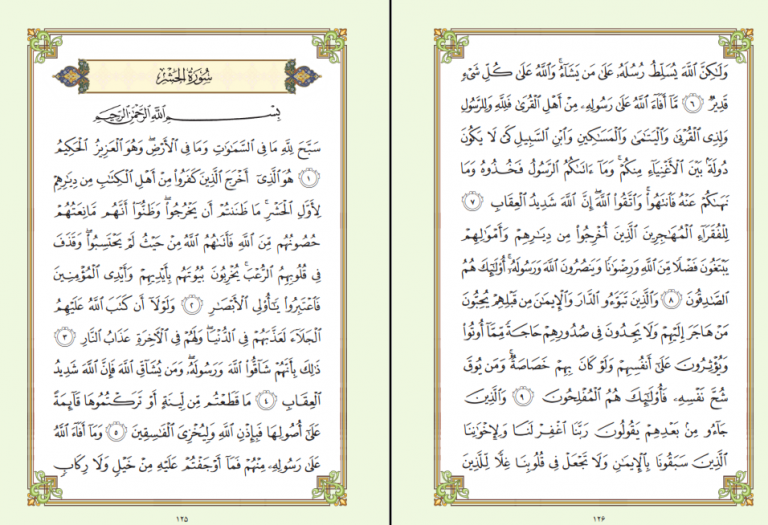 سُورَةُ الحَشْرِ
بِسْمِ اللَّهِ الرَّحْمَٰنِ الرَّحِيمِ
سَبَّحَ لِلَّهِ مَا فِي ٱلسَّمَٰوَٰتِ وَمَا فِي ٱلْأَرْضِۖ وَهُوَ ٱلْعَزِيزُ ٱلْحَكِيمُ
١ هُوَ ٱلَّذِيٓ أَخْرَجَ ٱلَّذِينَ كَفَرُواْ مِنْ أَهْلِ ٱلْكِتَٰبِ مِن دِيَٰرِهِمْ
لِأَوَّلِ ٱلْحَشْرِۚ مَا ظَنَنتُمْ أَن يَخْرُجُواْۖ وَظَنُّوٓاْ أَنَّهُم مَّانِعَتُهُمْ
حُصُونُهُم مِّنَ ٱللَّهِ فَأَتَىٰهُمُ ٱللَّهُ مِنْ حَيْثُ لَمْ يَحْتَسِبُواْۖ وَقَذَفَ
فِي قُلُوبِهِمُ ٱلرُّعْبَۚ يُخْرِبُونَ بُيُوتَهُم بِأَيْدِيهِمْ وَأَيْدِي ٱلْمُؤْمِنِينَ
فَٱعْتَبِرُواْ يَٰٓأُوْلِي ٱلْأَبْصَٰرِ ٢ وَلَوْلَآ أَن كَتَبَ ٱللَّهُ عَلَيْهِمُ
ٱلْجَلَآءَ لَعَذَّبَهُمْ فِي ٱلدُّنْيَاۖ وَلَهُمْ فِي ٱلْأٓخِرَةِ عَذَابُ ٱلنَّارِ ٣
ذَٰلِكَ بِأَنَّهُمْ شَآقُّواْ ٱللَّهَ وَرَسُولَهُۥۖ وَمَن يُشَآقِّ ٱللَّهَ فَإِنَّ ٱللَّهَ شَدِيدُ
ٱلْعِقَابِ ٤ مَا قَطَعْتُم مِّن لِّينَةٍ أَوْ تَرَكْتُمُوهَا قَآئِمَةً
عَلَىٰٓ أُصُولِهَا فَبِإِذْنِ ٱللَّهِ وَلِيُخْزِيَ ٱلْفَٰسِقِينَ ٥ وَمَآ أَفَآءَ ٱللَّهُ
عَلَىٰ رَسُولِهِۦ مِنْهُمْ فَمَآ أَوْجَفْتُمْ عَلَيْهِ مِنْ خَيْلٍ وَلَا رِكَابٍ
١٢٥
وَلَٰكِنَّ ٱللَّهَ يُسَلِّطُ رُسُلَهُۥ عَلَىٰ مَن يَشَآءُۚ وَٱللَّهُ عَلَىٰ كُلِّ شَيْءٍ
قَدِيرٌ ٦ مَّآ أَفَآءَ ٱللَّهُ عَلَىٰ رَسُولِهِۦ مِنْ أَهْلِ ٱلْقُرَىٰ فَلِلَّهِ وَلِلرَّسُولِ
وَلِذِي ٱلْقُرْبَىٰ وَٱلْيَتَٰمَىٰ وَٱلْمَسَٰكِينِ وَٱبْنِ ٱلسَّبِيلِ كَيْ لَا يَكُونَ
دُولَةَۢ بَيْنَ ٱلْأَغْنِيَآءِ مِنكُمْۚ وَمَآ ءَاتَىٰكُمُ ٱلرَّسُولُ فَخُذُوهُ وَمَا
نَهَىٰكُمْ عَنْهُ فَٱنتَهُواْۚ وَٱتَّقُواْ ٱللَّهَۖ إِنَّ ٱللَّهَ شَدِيدُ ٱلْعِقَابِ ٧
لِلْفُقَرَآءِ ٱلْمُهَٰجِرِينَ ٱلَّذِينَ أُخْرِجُواْ مِن دِيَٰرِهِمْ وَأَمْوَٰلِهِمْ
يَبْتَغُونَ فَضْلًا مِّنَ ٱللَّهِ وَرِضْوَٰنًا وَيَنصُرُونَ ٱللَّهَ وَرَسُولَهُۥٓۚ أُوْلَٰٓئِكَ هُمُ
ٱلصَّٰدِقُونَ ٨ وَٱلَّذِينَ تَبَوَّءُو ٱلدَّارَ وَٱلْإِيمَٰنَ مِن قَبْلِهِمْ يُحِبُّونَ
مَنْ هَاجَرَ إِلَيْهِمْ وَلَا يَجِدُونَ فِي صُدُورِهِمْ حَاجَةً مِّمَّآ أُوتُواْ
وَيُؤْثِرُونَ عَلَىٰٓ أَنفُسِهِمْ وَلَوْ كَانَ بِهِمْ خَصَاصَةٌۚ وَمَن يُوقَ
شُحَّ نَفْسِهِۦ فَأُوْلَٰٓئِكَ هُمُ ٱلْمُفْلِحُونَ ٩ وَٱلَّذِينَ
جَآءُو مِنۢ بَعْدِهِمْ يَقُولُونَ رَبَّنَا ٱغْفِرْ لَنَا وَلِإِخْوَٰنِنَا
ٱلَّذِينَ سَبَقُونَا بِٱلْإِيمَٰنِ وَلَا تَجْعَلْ فِي قُلُوبِنَا غِلًّا لِّلَّذِينَ
١٢٦